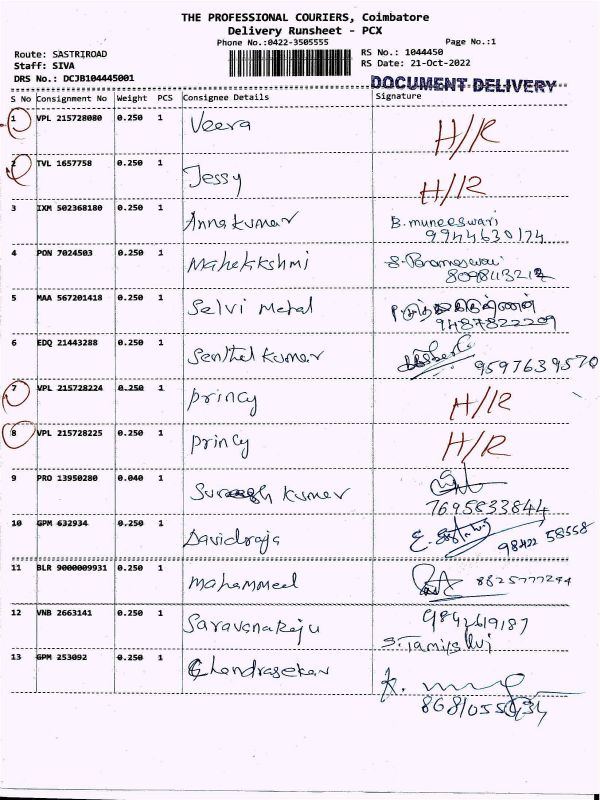 THE PROFESSIONAL COURIERS, Coimbatore
Delivery Runsheet - PCX
Phone No.:0422-3505555 Page No.:1
Route: SASTRIROAD RS No.: 1044450
Staff: SIVA RS Date: 21-Oct-2022
DRS No.: DCJB104445001 DOCUMENT DELIVERY
S No Consignment No Weight PCS Consignee Details Signature
1 VPL 215728080 0.250 1 Veera H/R
2 TVL 1657758 0.250 1 Jessy H/R
3 IXM 502368180 0.250 1 Annakumar B.muneeswari
9944630174
4 PON 7024503 0.250 1 Mahekkshmi
5 MAA 567201418 0.250 1 Selvi Metal
9487822209
6 EDQ 21443288 0.250 1 Senthel kumar 9597639570
7 VPL 215728224 0.250 1 princy H/R
8 VPL 215728225 0.250 1 princy H/R
9 PRO 13950280 0.040 1 kumar
7695833844
10 GPM 632934 0.250 1 Davidraja 98422 58558
11 BLR 9000009931 0.250 1 Mahammeed 8825777294
12 VNB 2663141 0.250 1 Saravanaraju 9842619187
13 GPM 253092 0.250 1 Chandrasekar